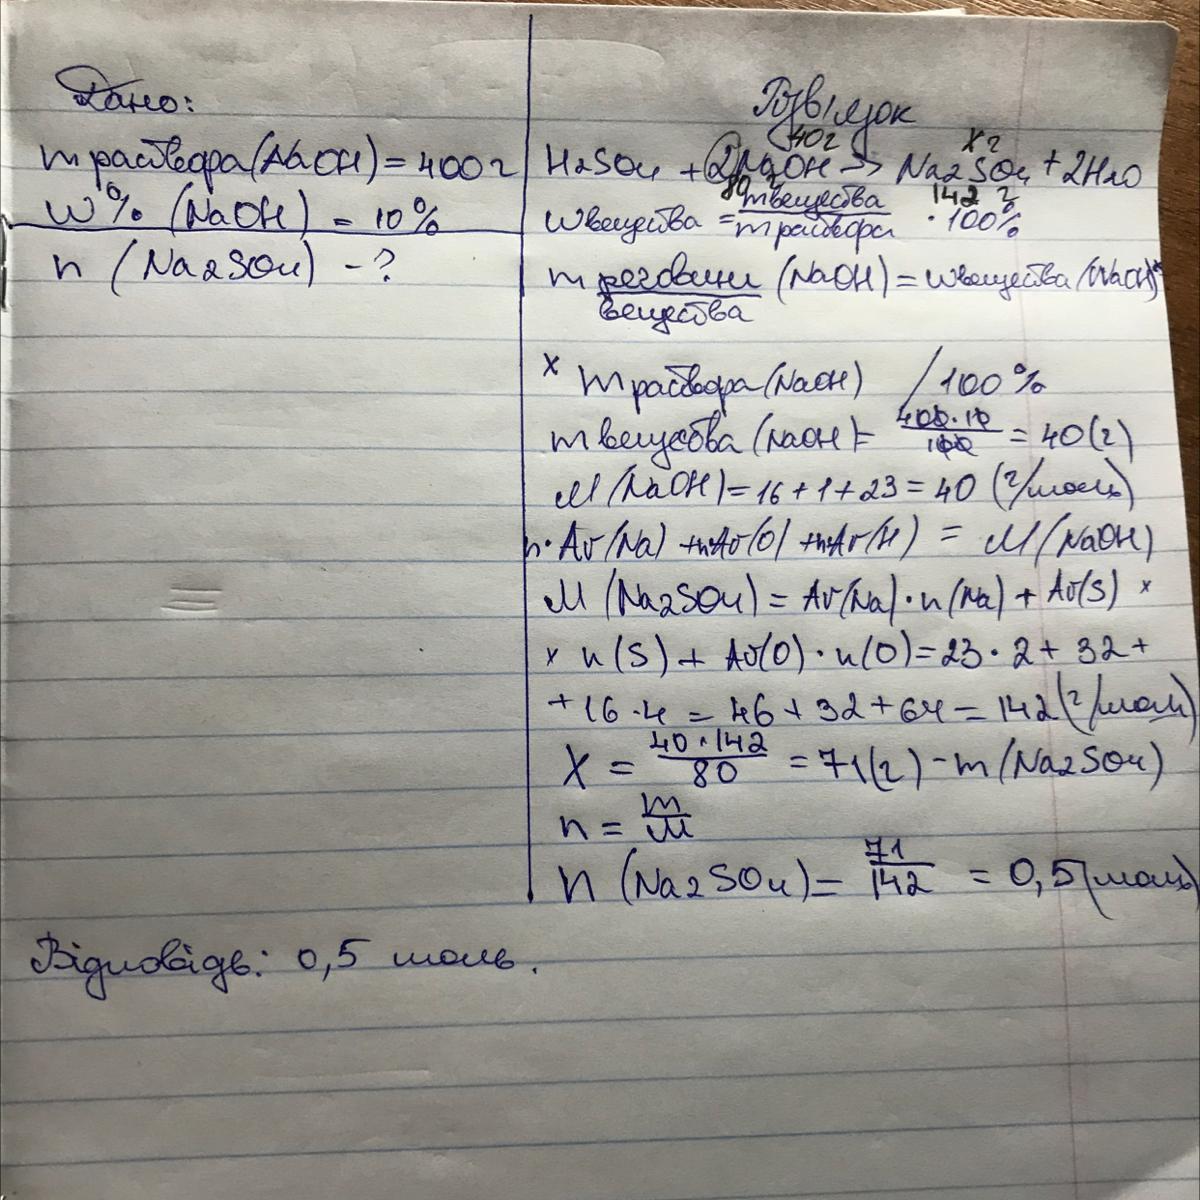 Дано:
m раствора (NaOH) = 400 г
W% (NaOH) = 10%
n (Na2SO4) - ?
Розв'язок
40 г x г
H2SO4 + 2NaOH → Na2SO4 + 2H2O
80 г 142 г
w вещества = m вещества / m раствора · 100%
m речовини (NaOH) = w вещества (NaOH) ×
вещества
× m раствора (NaOH) / 100%
m вещества (NaOH) = 400·10 / 100 = 40 (г)
M (NaOH) = 16 + 1 + 23 = 40 (г/моль)
n·Ar(Na) + nAr(O) + nAr(H) = M (NaOH)
M (Na2SO4) = Ar(Na)·n(Na) + Ar(S) ×
× n(S) + Ar(O)·n(O) = 23·2 + 32 +
+ 16·4 = 46 + 32 + 64 = 142 (г/моль)
X = 40·142 / 80 = 71 (г) - m (Na2SO4)
n = m / M
n (Na2SO4) = 71 / 142 = 0,5 (моль)
Відповідь: 0,5 моль.